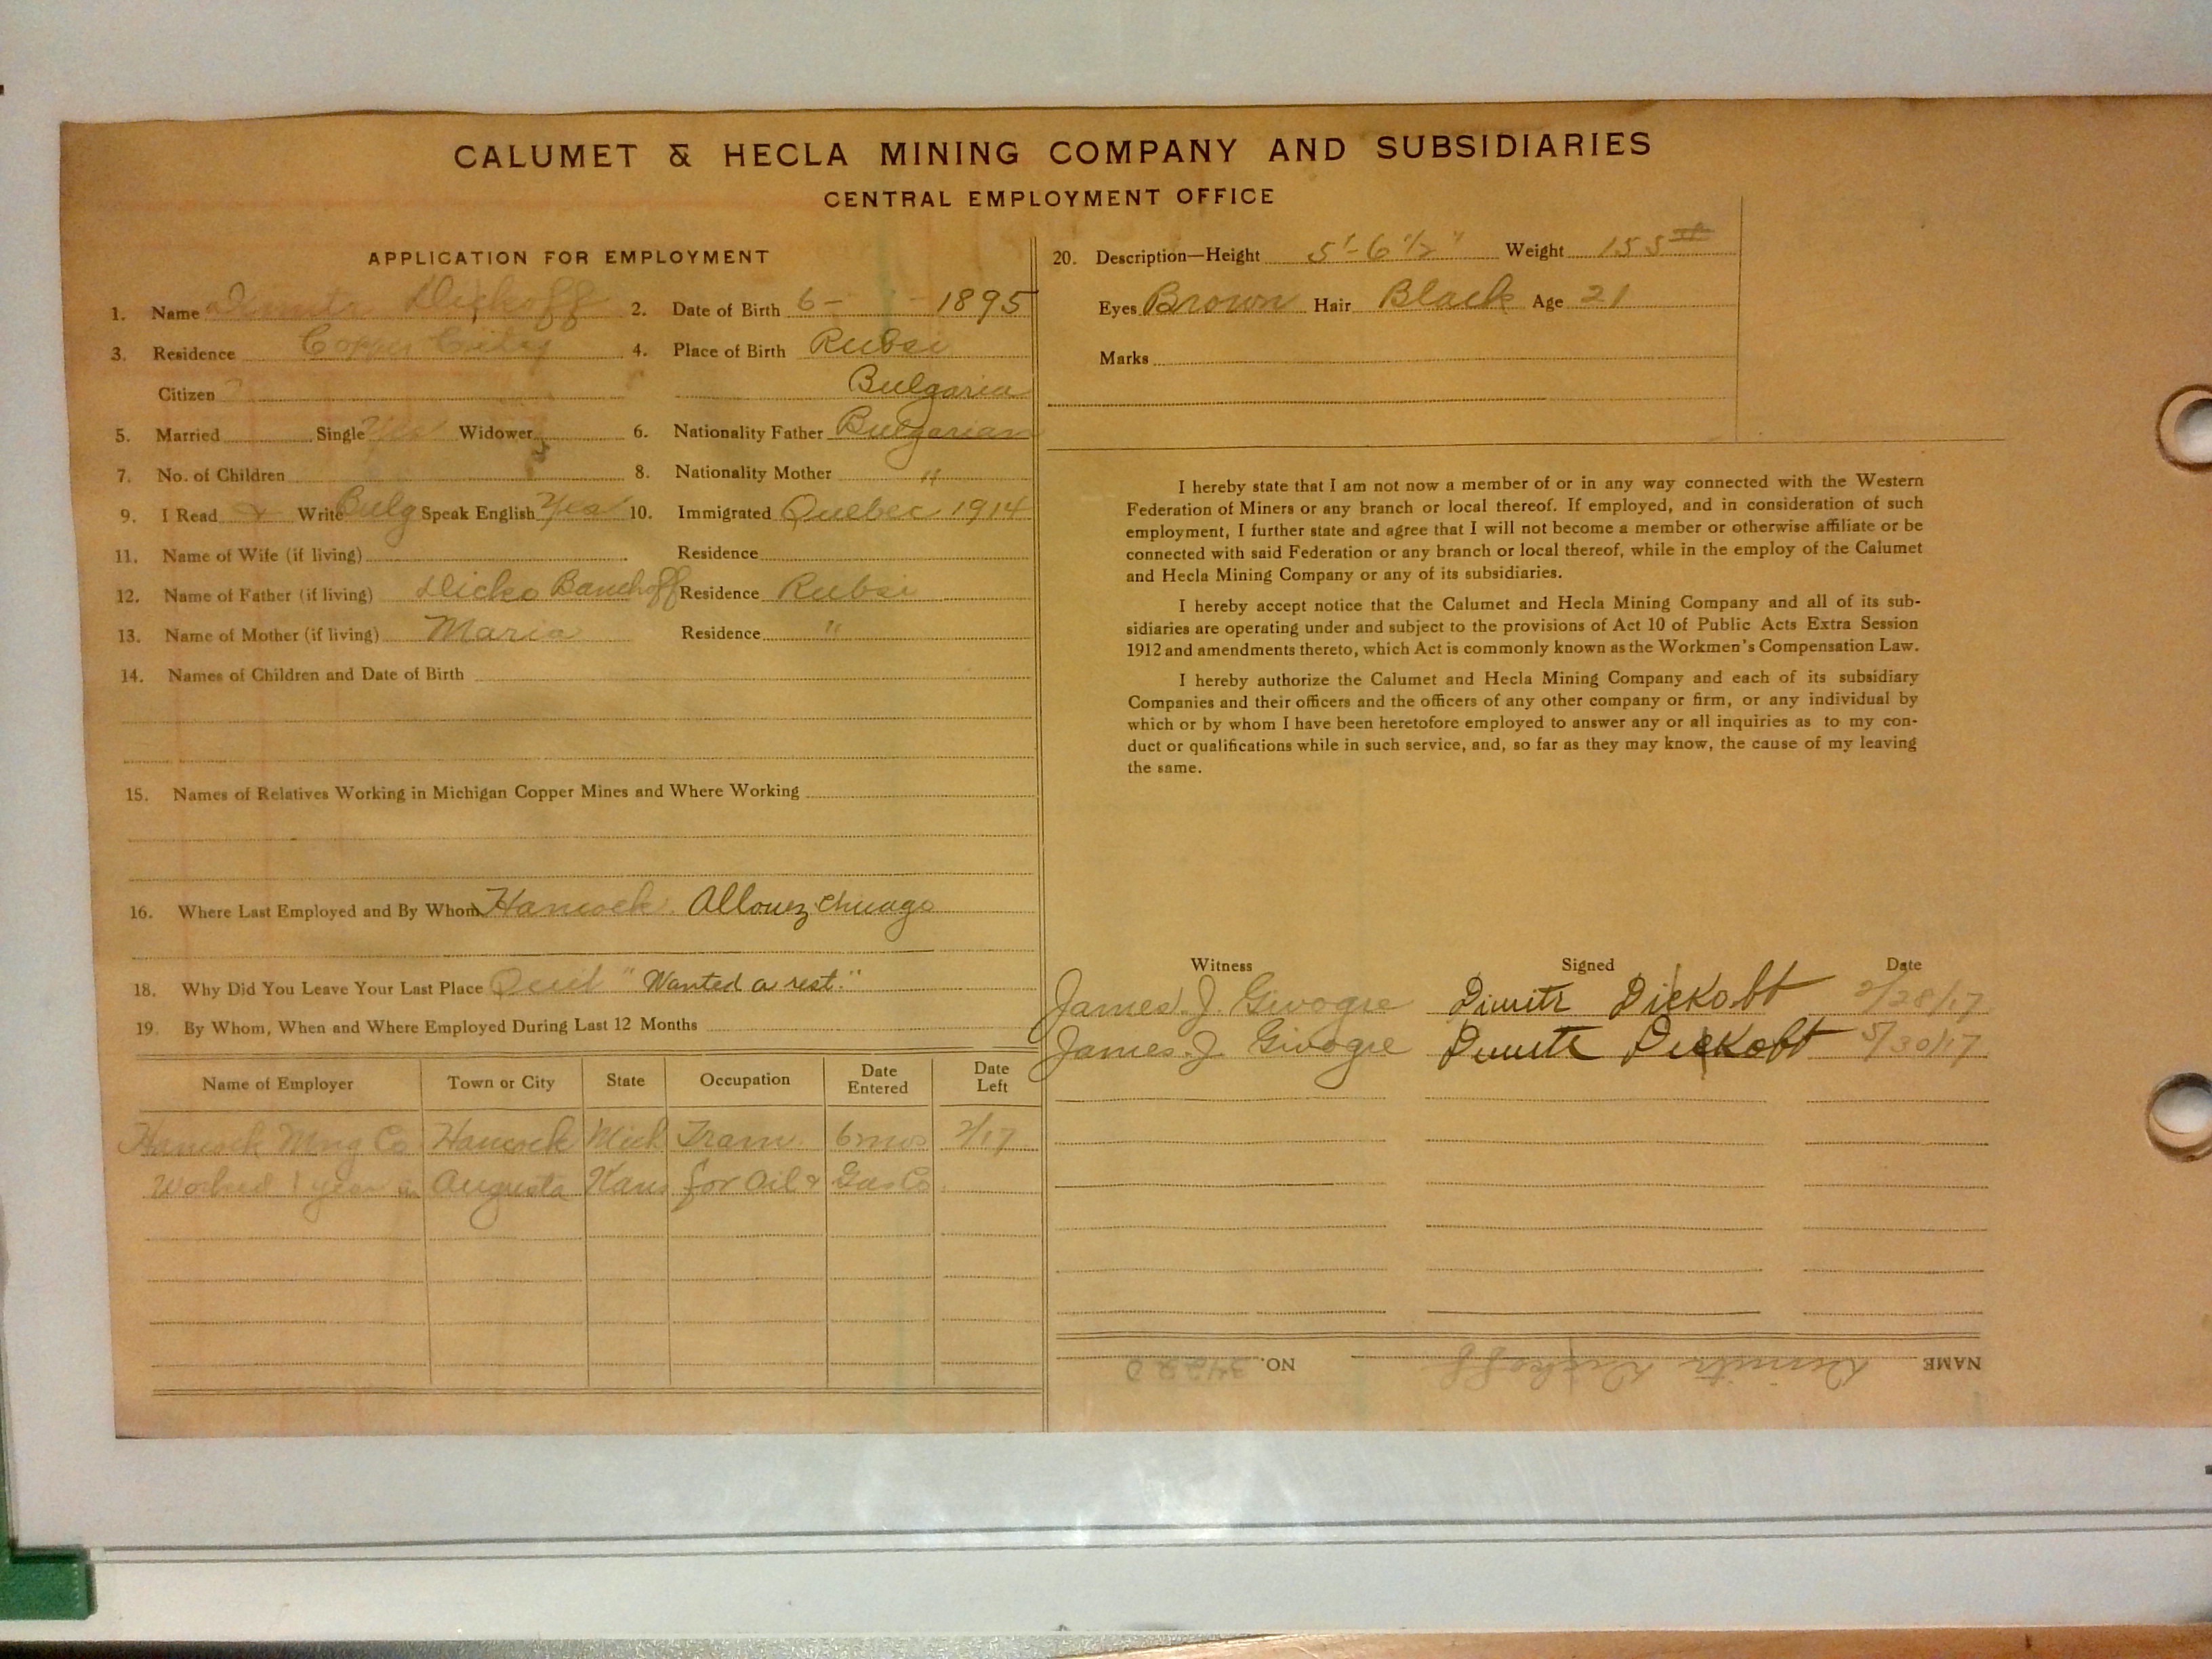 CALUMET & HECLA MINING COMPANY AND SUBSIDIARIES
CENTRAL EMPLOYMENT OFFICE
APPLICATION FOR EMPLOYMENT
1. Name Dimitr Dickoff 2. Date of Birth 6- - 1895
3. Residence Copper City 4. Place of Birth Rubsi
Citizen ? Bulgaria
5. Married Single Yes Widower 6. Nationality Father Bulgarian
7. No. of Children 8. Nationality Mother "
9. I Read & Write Bulg Speak English Yes 10. Immigrated Quebec 1914
11. Name of Wife (if living) Residence
12. Name of Father (if living) Dicko Residence Rubsi
13. Name of Mother (if living) Maria Residence "
14. Names of Children and Date of Birth
15. Names of Relatives Working in Michigan Copper Mines and Where Working
16. Where Last Employed and By Whom Hancock. Allouez Chicago
18. Why Did You Leave Your Last Place Quit "Wanted a rest."
19. By Whom, When and Where Employed During Last 12 Months
Name of Employer Town or City State Occupation Date Entered Date Left
Hancock Mng Co Hancock Mich Tram. 6 mos 2/17
Worked 1 year in Augusta Kans for Oil & Gas Co
20. Description—Height 5'-6 1/2" Weight 155
Eyes Brown Hair Black Age 21
Marks
I hereby state that I am not now a member of or in any way connected with the Western
Federation of Miners or any branch or local thereof. If employed, and in consideration of such
employment, I further state and agree that I will not become a member or otherwise affiliate or be
connected with said Federation or any branch or local thereof, while in the employ of the Calumet
and Hecla Mining Company or any of its subsidiaries.
I hereby accept notice that the Calumet and Hecla Mining Company and all of its sub-
sidiaries are operating under and subject to the provisions of Act 10 of Public Acts Extra Session
1912 and amendments thereto, which Act is commonly known as the Workmen's Compensation Law.
I hereby authorize the Calumet and Hecla Mining Company and each of its subsidiary
Companies and their officers and the officers of any other company or firm, or any individual by
which or by whom I have been heretofore employed to answer any or all inquiries as to my con-
duct or qualifications while in such service, and, so far as they may know, the cause of my leaving
the same.
Witness Signed Date
James. J. Givogre Dimitr Dickobt 2/28/17
James. J Givogre Dimitr Dickobt 5/30/17
NAME Dimitr Dickoff NO.